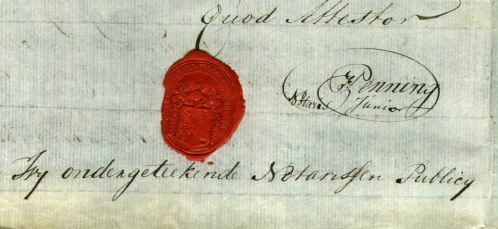 Quod Attestor
Penning
Notaris Junior
Wy ondergeteekende Notarissen Publicq